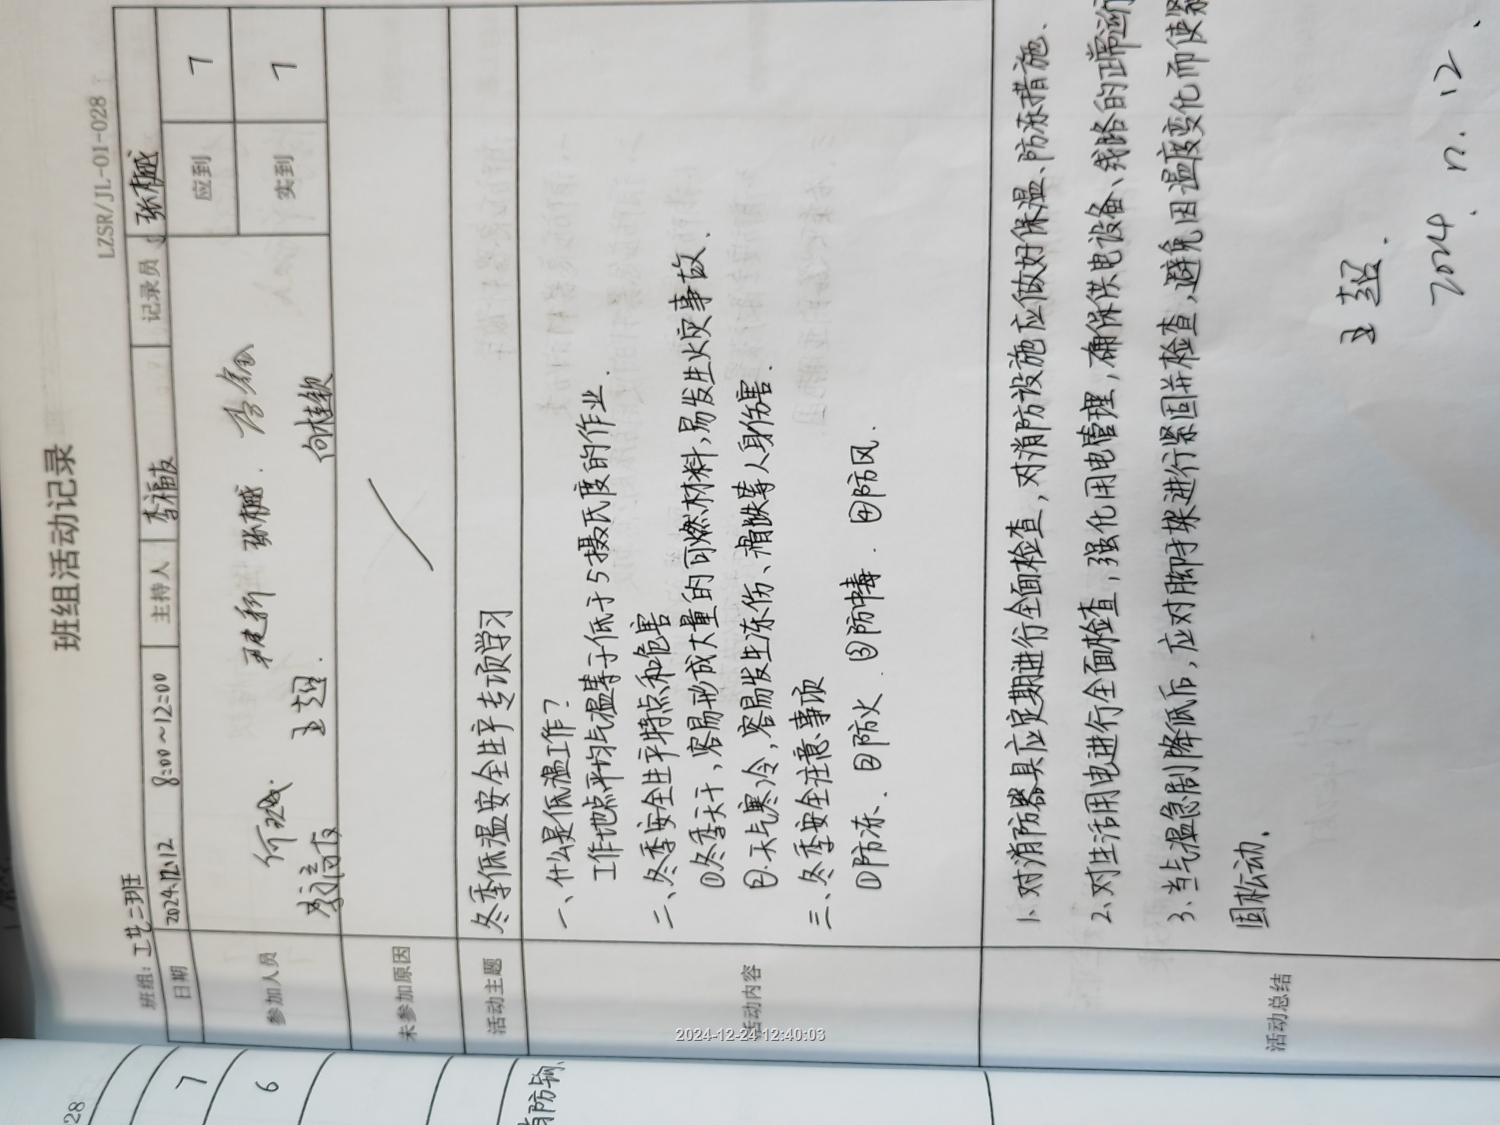 班组活动记录
LZSR/JL-01-028
班组：工艺二班
日期 2024.12.12 8:00～12:00 主持人 李福友 记录员 张樾
参加人员 应到 7
实到 7
张樾
李福友 王超 向桂颖
未参加原因
活动主题 冬季低温安全生产专项学习
活动内容
一、什么是低温工作？
工作地点平均气温等于低于5摄氏度的作业.
二、冬季安全生产特点和危害
①冬季天干，容易形成大量的可燃材料，易发生火灾事故.
②.天气寒冷，容易发生冻伤、滑跌等人身伤害.
三、冬季安全注意事项
①防冻、②防火. ③防中毒. ④防风.
活动总结
1、对消防器具应定期进行全面检查，对消防设施应做好保温、防冻措施.
2、对生活用电进行全面检查，强化用电管理，确保供电设备、线路的正常运
3、当气温急剧降低后，应对脚手架进行紧固并检查，避免因温度变化而使紧
固松动.
王超.
2024. 12. 12.
2024-12-24 12:40:03
28
7
6